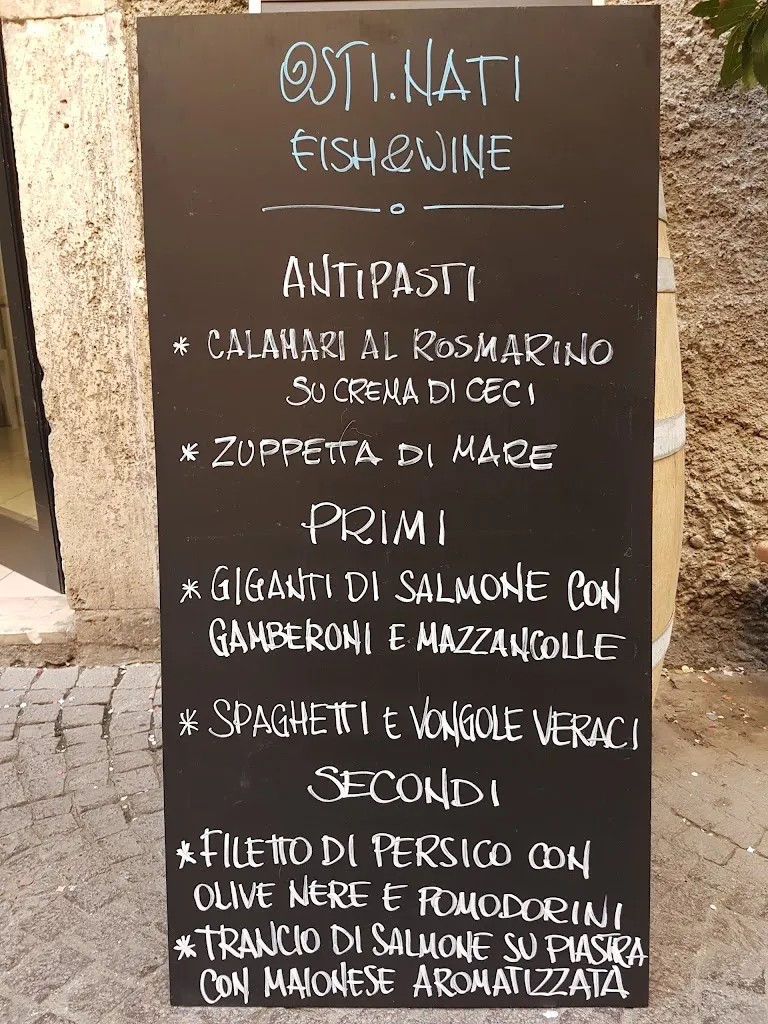 OSTI.NATI
FISH&WINE
ANTIPASTI
* CALAMARI AL ROSMARINO
SU CREMA DI CECI
* ZUPPETTA DI MARE
PRIMI
* GIGANTI DI SALMONE CON
GAMBERONI E MAZZANCOLLE
* SPAGHETTI E VONGOLE VERACI
SECONDI
* FILETTO DI PERSICO CON
OLIVE NERE E POMODORINI
* TRANCIO DI SALMONE SU PIASTRA
CON MAIONESE AROMATIZZATA